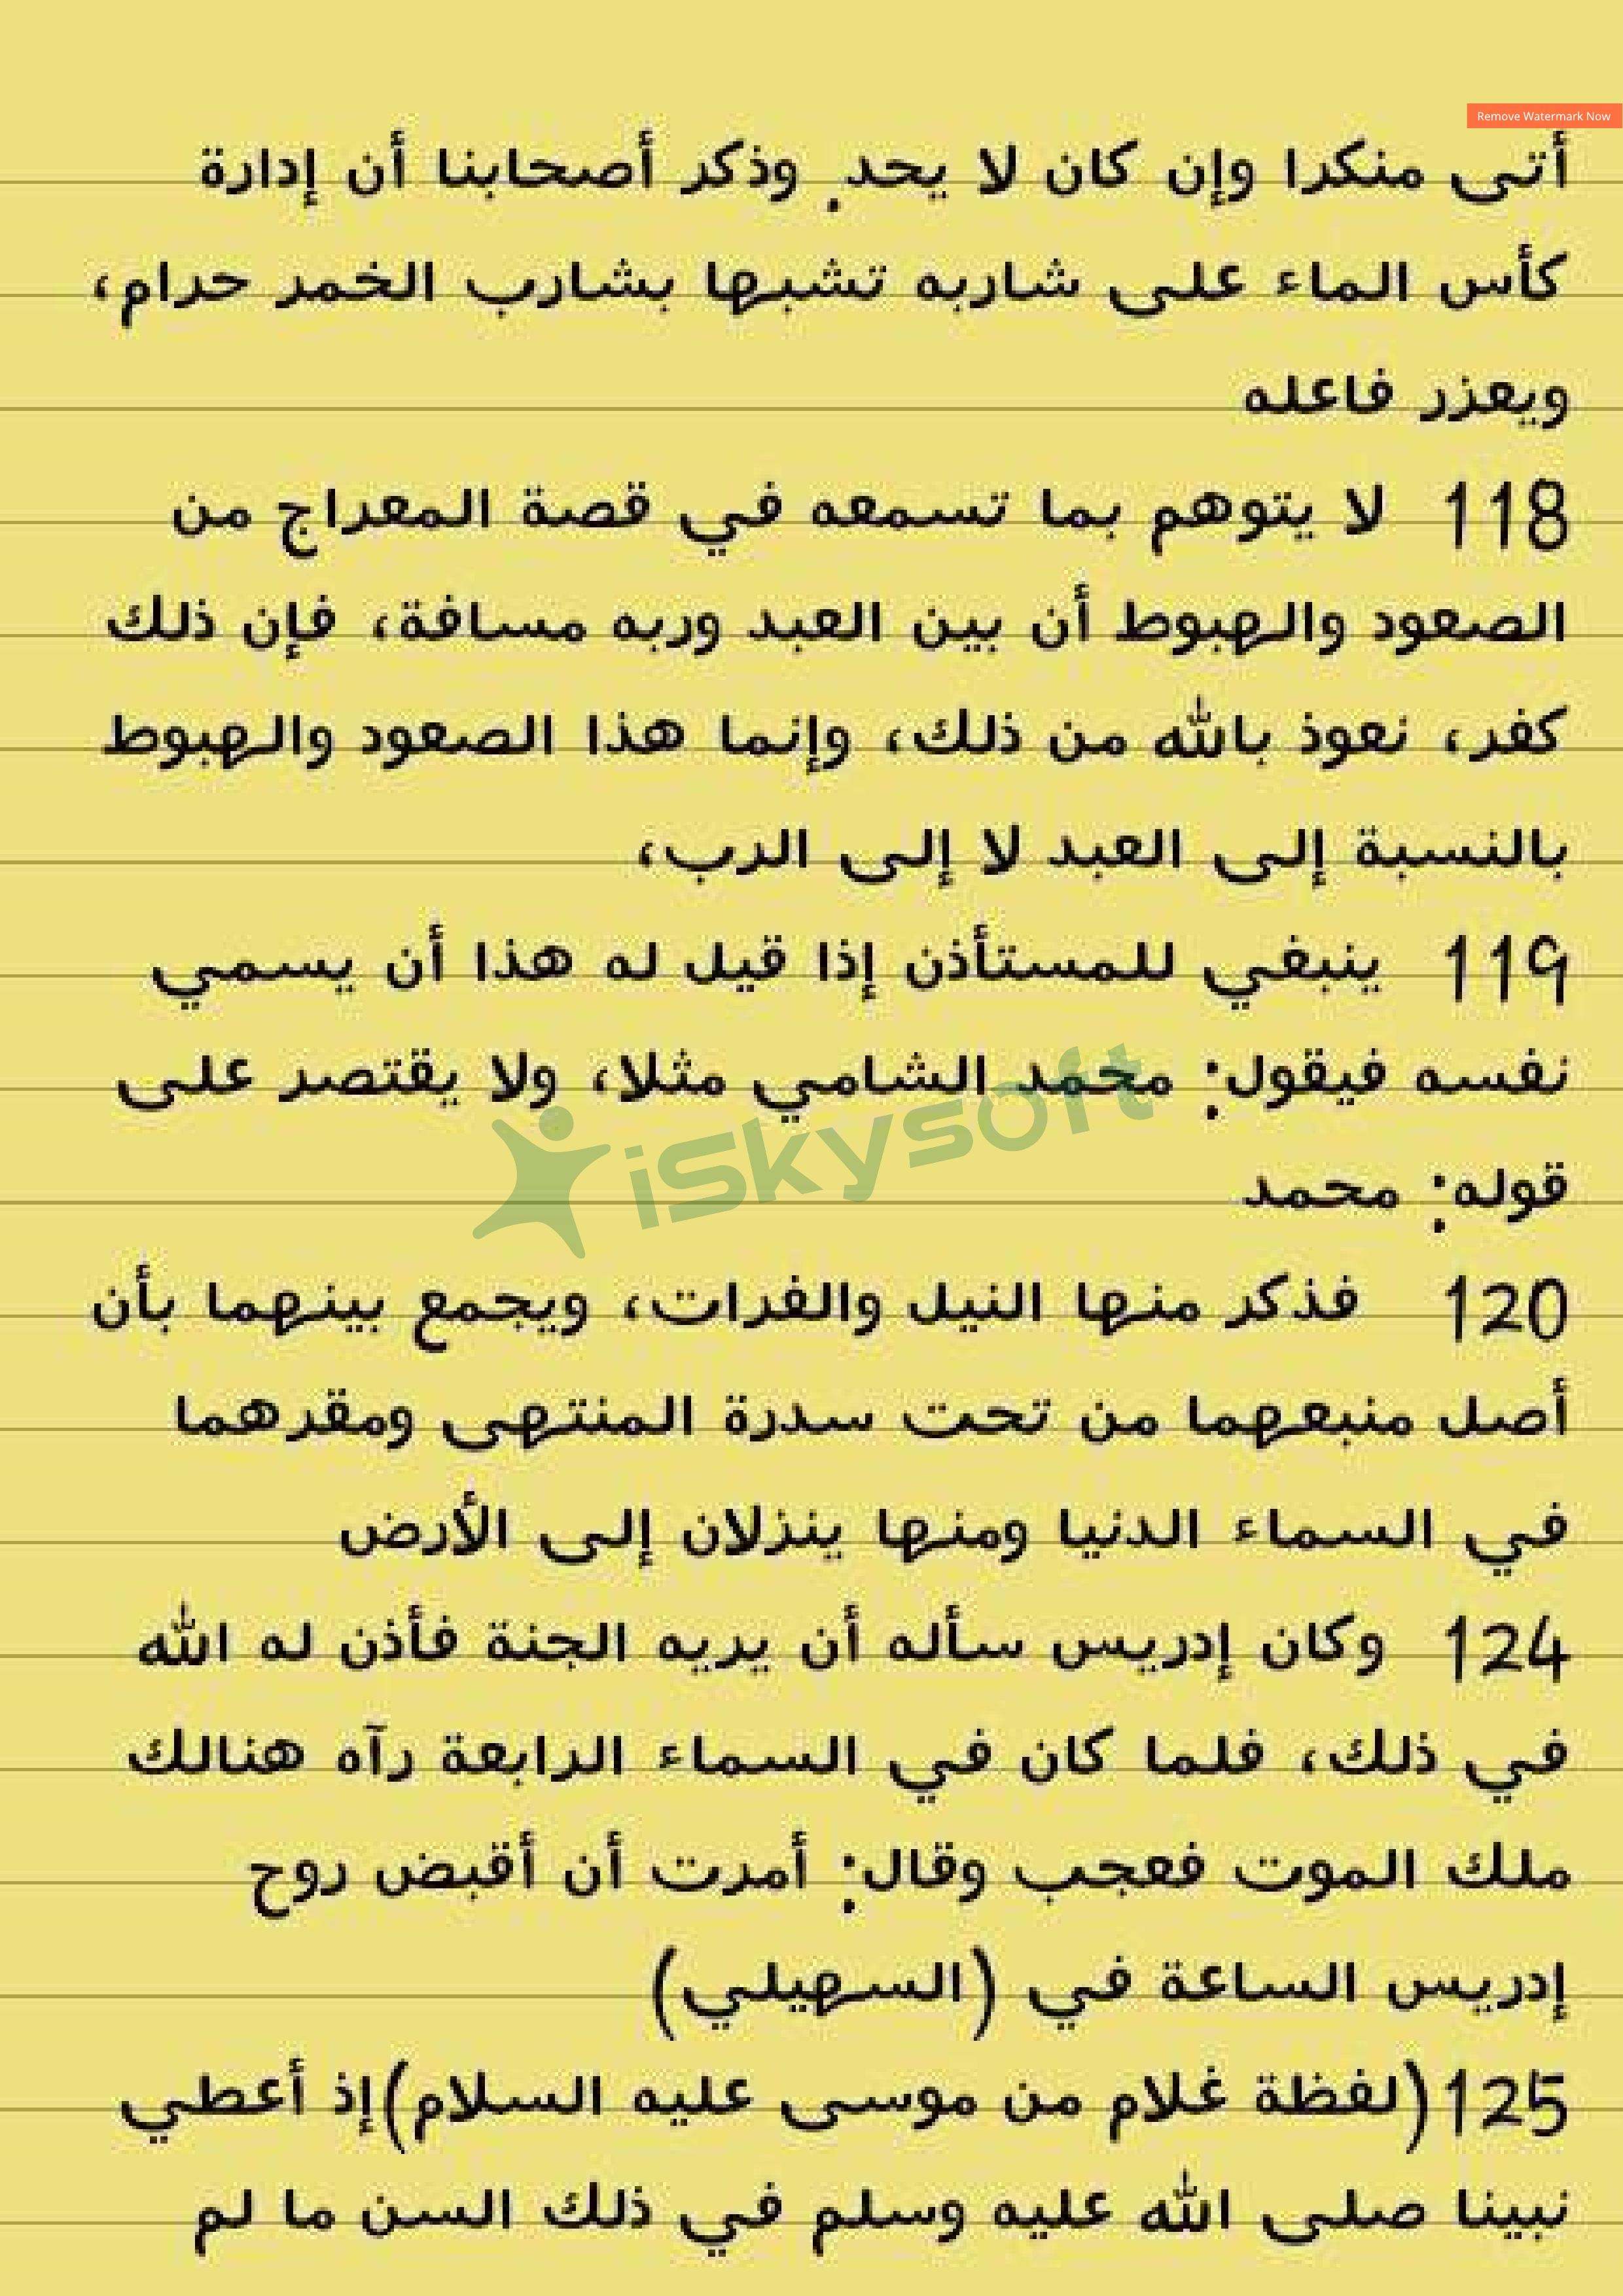 Remove Watermark Now
أتى منكرا وإن كان لا يحد. وذكر أصحابنا أن إدارة
كأس الماء على شاربه تشبها بشارب الخمر حرام،
ويعزر فاعله
118 لا يتوهم بما تسمعه في قصة المعراج من
الصعود والهبوط أن بين العبد وربه مسافة، فإن ذلك
كفر، نعوذ بالله من ذلك، وإنما هذا الصعود والهبوط
بالنسبة إلى العبد لا إلى الرب،
119 ينبغي للمستأذن إذا قيل له هذا أن يسمي
نفسه فيقول: محمد الشامي مثلا، ولا يقتصر على
قوله: محمد
iskysoft
120 فذكر منها النيل والفرات، ويجمع بينهما بأن
أصل منبعهما من تحت سدرة المنتهى ومقرهما
في السماء الدنيا ومنها ينزلان إلى الأرض
124 وكان إدريس سأله أن يريه الجنة فأذن له الله
في ذلك، فلما كان في السماء الرابعة رآه هنالك
ملك الموت فعجب وقال: أمرت أن أقبض روح
إدريس الساعة في (السهيلي)
125(لفظة غلام من موسى عليه السلام)إذ أعطي
نبينا صلى الله عليه وسلم في ذلك السن ما لم